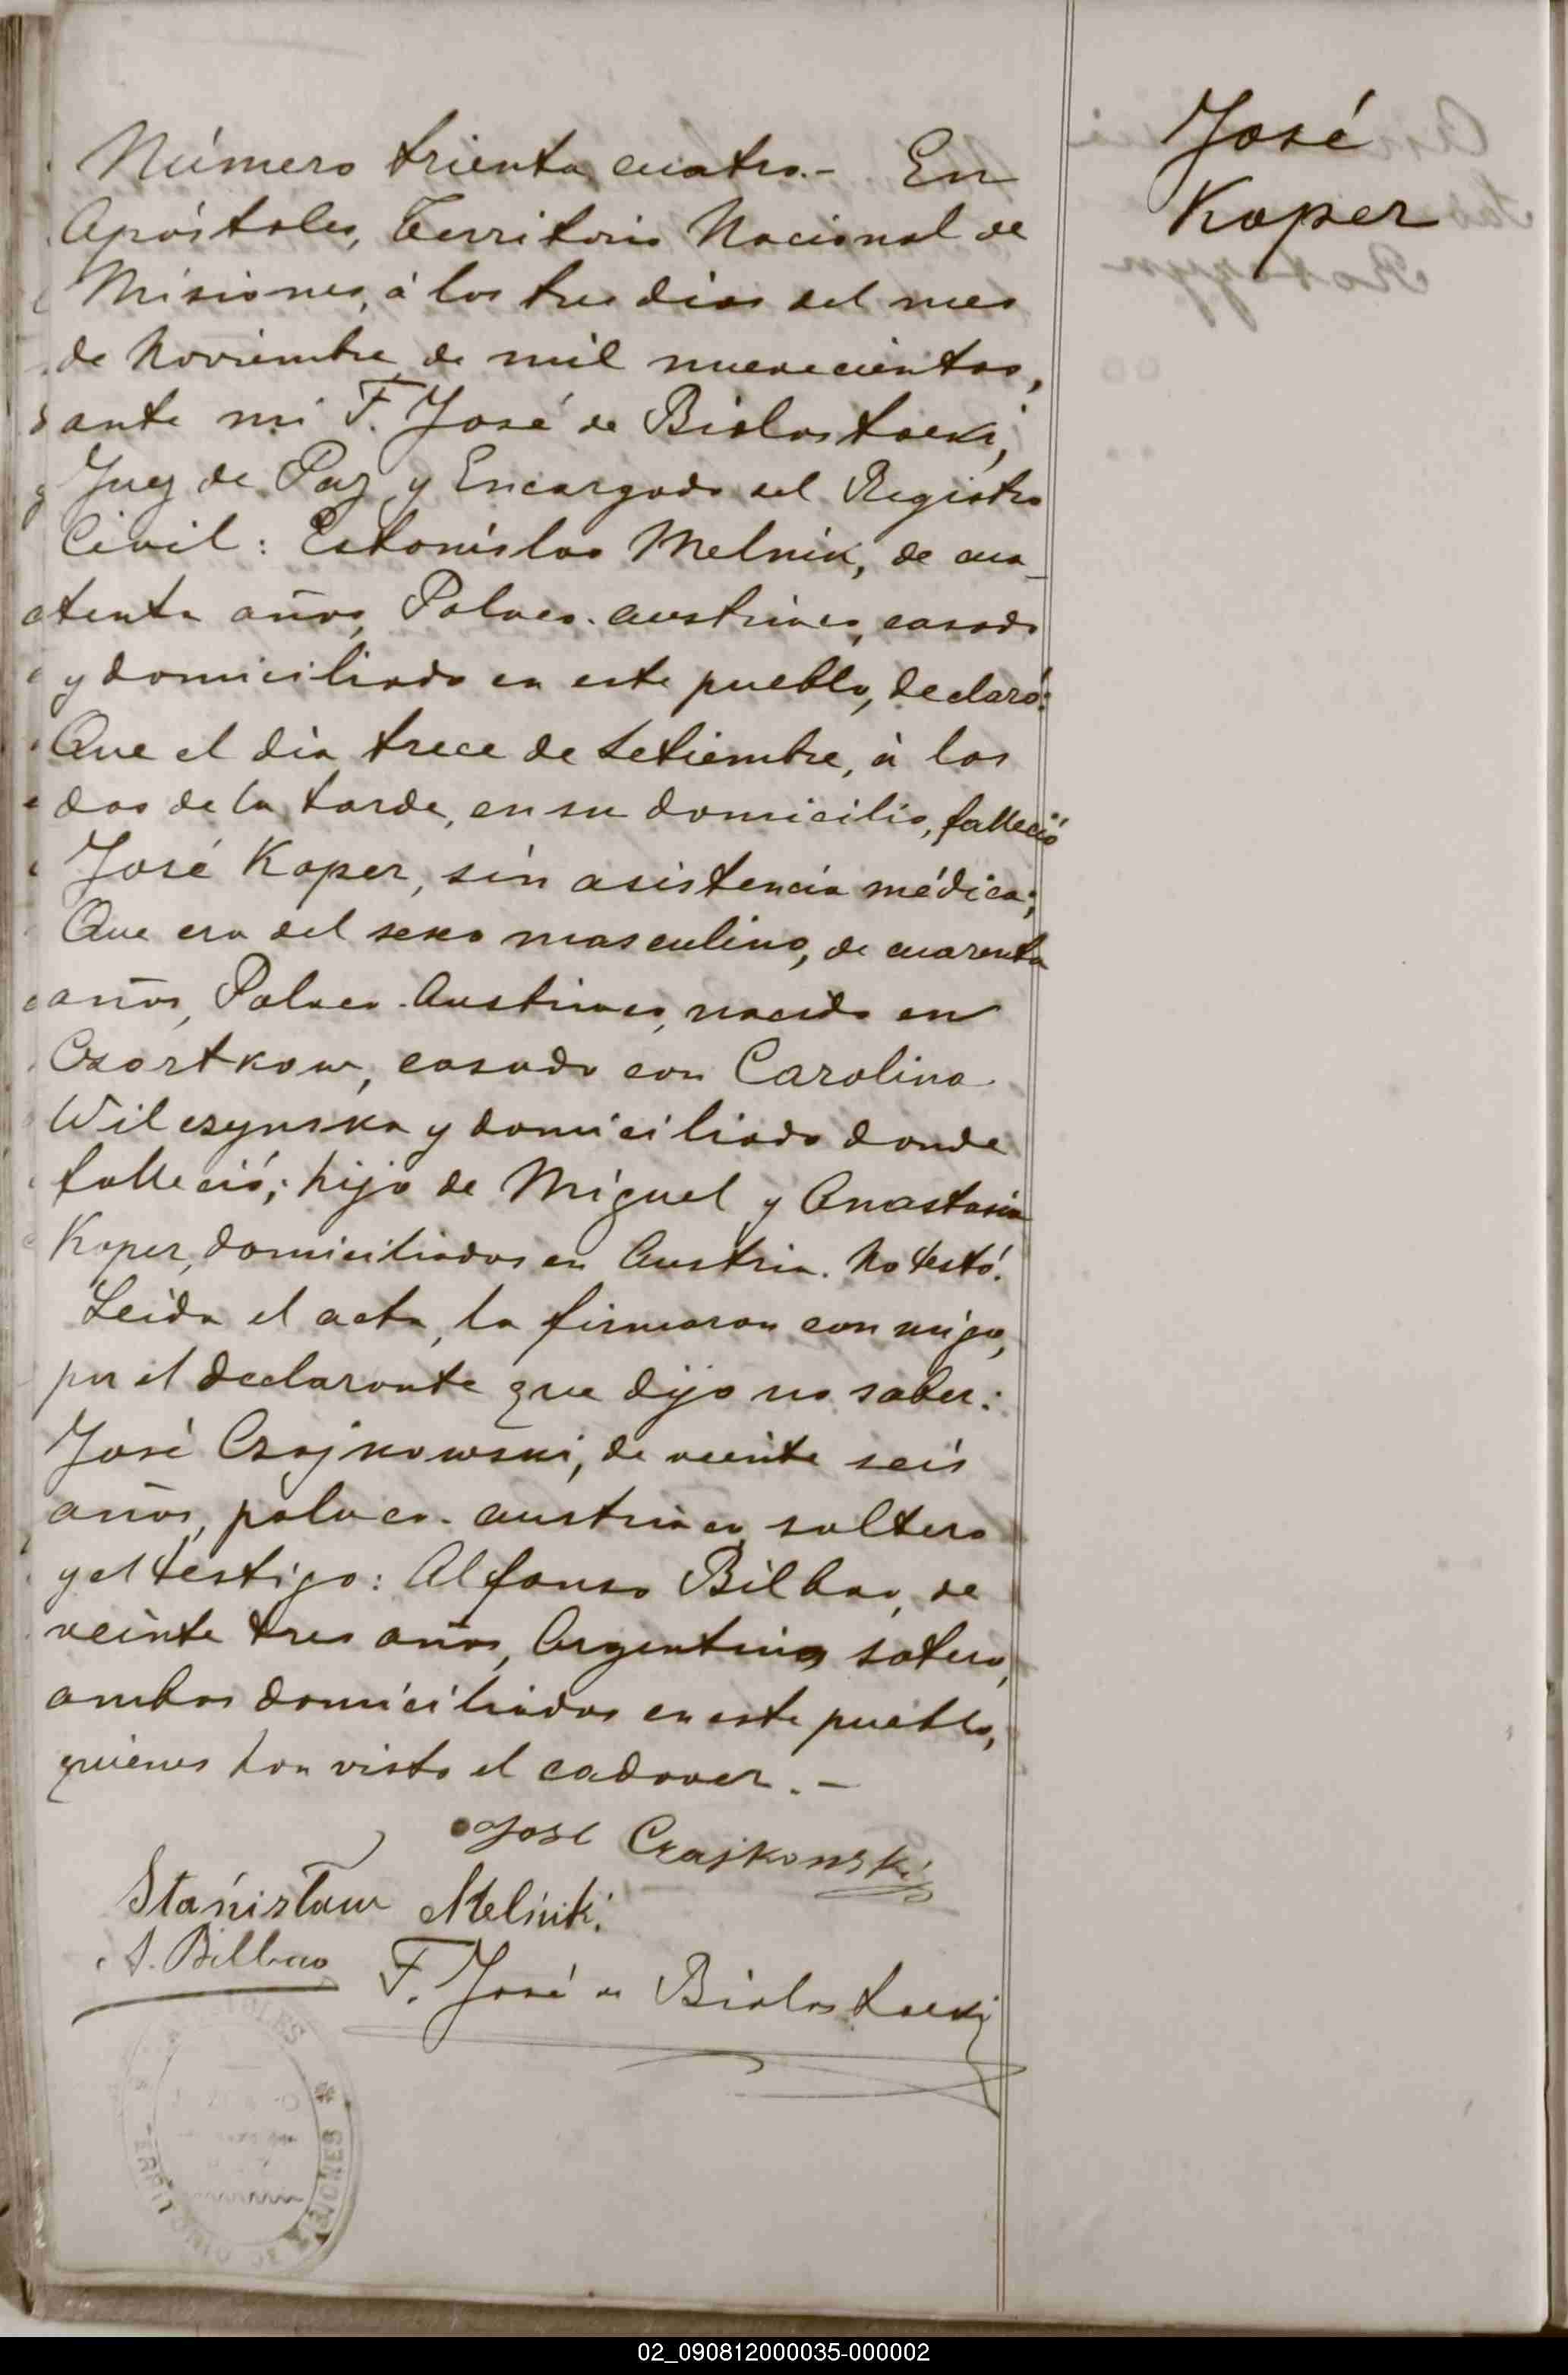 José
Koper
Número trienta cuatro.- En
Apóstoles, Territorio Nacional de
Misiones, á los tres dias del mes
de Noviembre de mil nuevecientos,
ante mi F. José de Bialostocki,
Juez de Paz y Encargado del Registro
Civil: Estanislao Melnik, de cua-
renta años, Polaco-austriaco, casado
y domiciliado en este pueblo, declaró:
Que el dia trece de Setiembre, á las
dos de la tarde, en su domicilio, falleció
José Koper, sin asistencia médica;
Que era del sexo masculino, de cuarenta
años, Polaco-Austriaco, nacido en
Czortkow, casado con Carolina
Wilczynska y domiciliado donde
falleció; hijo de Miguel y Anastasia
Koper, domiciliados en Austria. No testó.
Leida el acta, la firmaron con migo,
por el declarante que dijo no saber:
José Czajkowski, de veinte seis
años, polaco-austriaco, soltero
y el testigo: Alfonso Bilbao, de
veinte tres años, Argentino, sotero,
ambos domiciliados en este pueblo,
quienes han visto el cadaver.-
José Czajkowski
Stanisław Melnik.
A. Bilbao F. José de Bialostocki
MISIONES
02_090812000035-000002